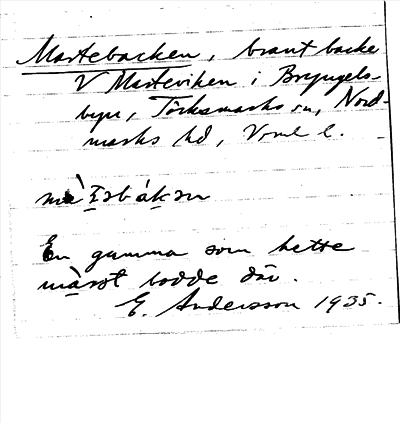 Martebacken, brant backe
V Marteviken i Bryngels-
byn, Töcksmarks sn, Nord-
marks hd, Vrml l.
En gumma som hette
bodde där.
E. Andersson 1935.